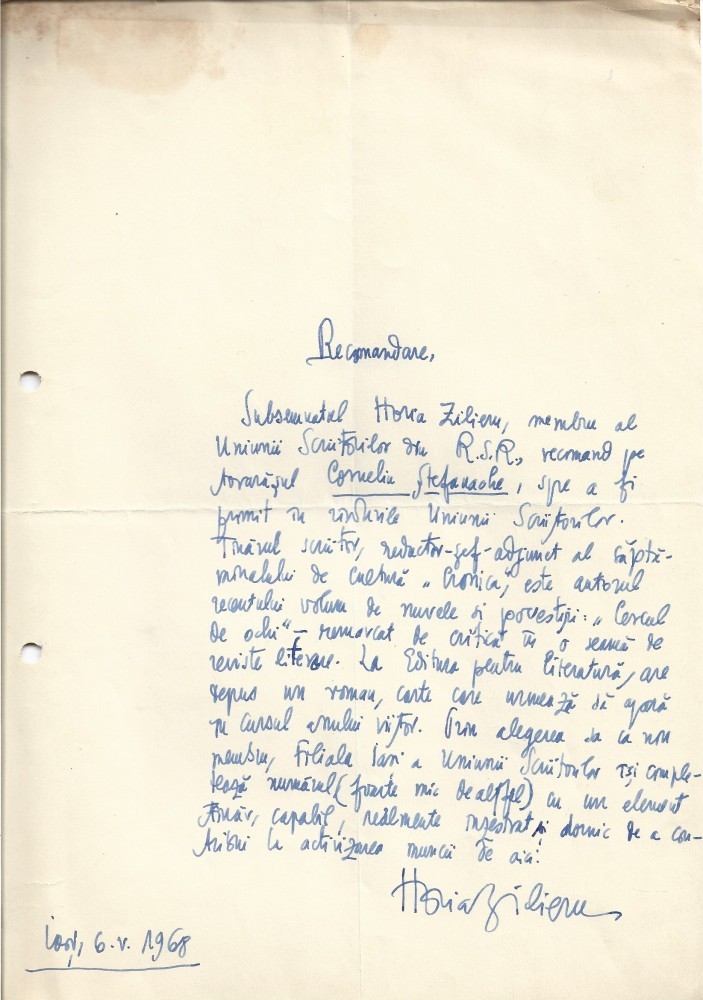 Recomandare,
Subsemnatul Horia Zilieru, membru al
Uniunii Scriitorilor din R.S.R., recomand pe
tovarășul Corneliu Ștefanache, spre a fi
primit în rîndurile Uniunii Scriitorilor.
Tînărul scriitor, redactor-șef-adjunct al săptă-
mînalului de cultură „Cronica”, este autorul
recentului volum de nuvele și povestiri: „Cercul
de ochi” – remarcat de critică în o seamă de
reviste literare. La Editura pentru literatură, are
depus un roman, carte care urmează să apară
în cursul anului viitor. Prin alegerea sa ca nou
membru, Filiala Iași a Uniunii Scriitorilor își comple-
tează numărul (foarte mic de altfel) cu un element
tînăr, capabil, realmente înzestrat și dornic de a con-
tribui la activizarea muncii de aici.
Horia Zilieru
Iași, 6.V.1968